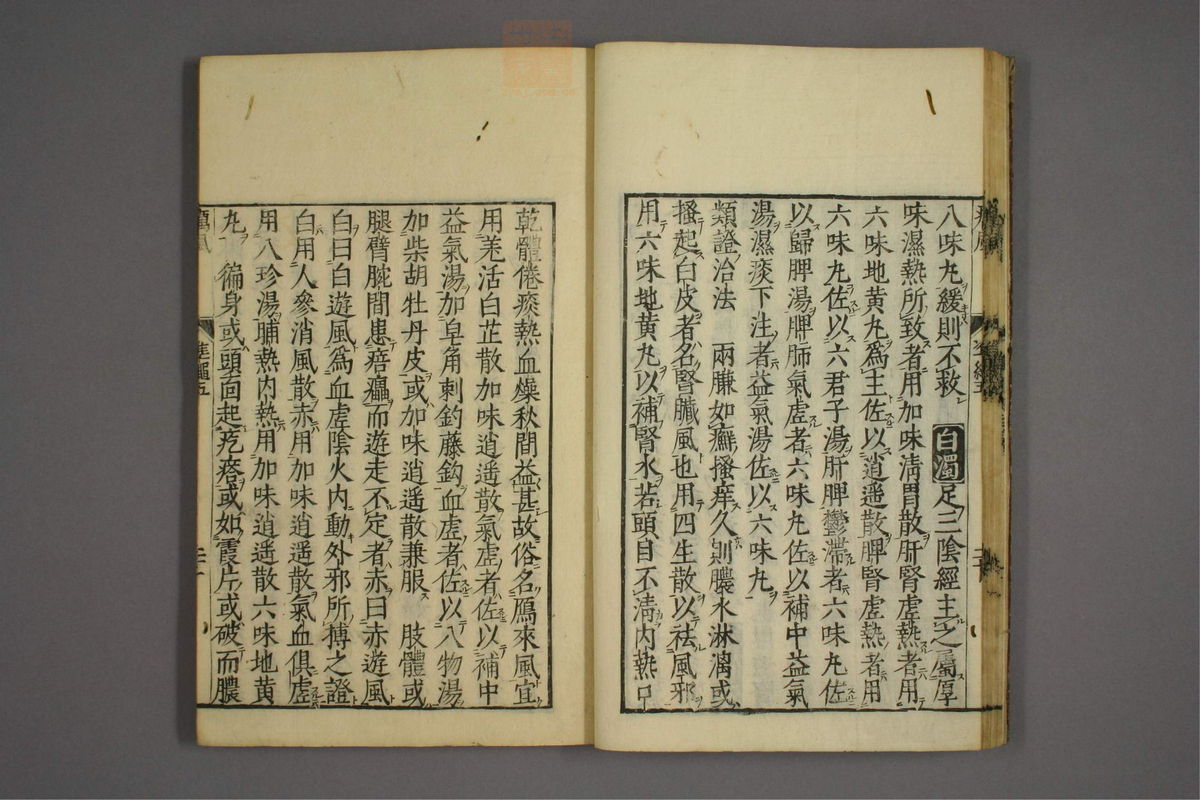 八味丸緩則不救　白濁　足三陰經主之屬厚
味濕熱所致者用加味清胃散肝腎虛熱者用
六味地黃丸爲主佐以逍遥散脾腎虛熱者用
六味丸佐以六君子湯肝脾鬱滯者六味丸佐
以歸脾湯脾肺氣虛者六味丸佐以補中益氣
湯濕痰下注者益氣湯佐以六味丸
類證治法　兩臁如癬搔痒久則膿水淋漓或
搔起白皮者名腎臟風也用四生散以祛風邪
用六味地黃丸以補腎水若頭目不清内熱口
乾體倦痰熱血燥秋間益甚故俗名鴈來風宜
用羌活白芷散加味逍遥散氣虛者佐以補中
益氣湯加皂角刺釣藤鈎血虛者佐以八物湯
加柴胡牡丹皮或加味逍遥散兼服　肢體或
腿臂腕間患瘖㿔而遊走不定者赤曰赤遊風
白曰白遊風爲血虛陰火内動外邪所搏之證
白用人參消風散赤用加味逍遥散氣血俱虛
用八珍湯晡熱内熱用加味逍遥散六味地黃
丸　徧身或頭面起疙瘩或如霞片或破而膿